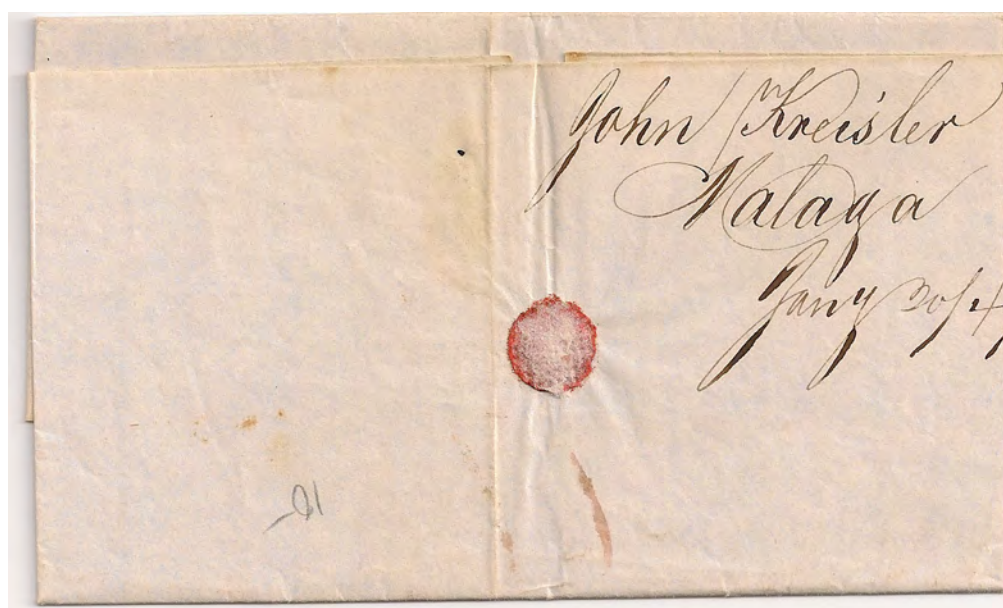 John Kreisler
Malaga
Jany 30/4